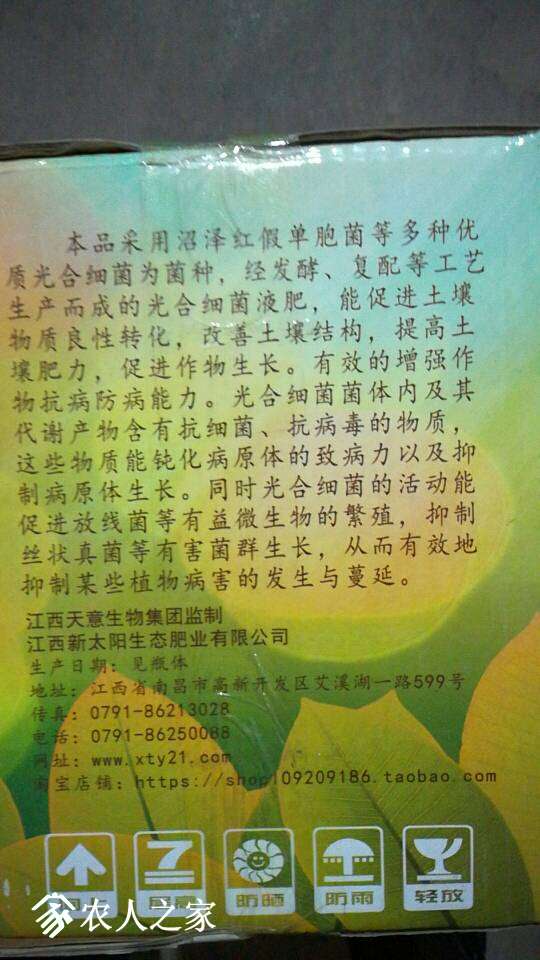 本品采用沼泽红假单胞菌等多种优
质光合细菌为菌种，经发酵、复配等工艺
生产而成的光合细菌液肥，能促进土壤
物质良性转化，改善土壤结构，提高土
壤肥力，促进作物生长。有效的增强作
物抗病防病能力。光合细菌菌体内及其
代谢产物含有抗细菌、抗病毒的物质，
这些物质能钝化病原体的致病力以及抑
制病原体生长。同时光合细菌的活动能
促进放线菌等有益微生物的繁殖，抑制
丝状真菌等有害菌群生长，从而有效地
抑制某些植物病害的发生与蔓延。
江西天意生物集团监制
江西新太阳生态肥业有限公司
生产日期：见瓶体
地址：江西省南昌市高新开发区艾溪湖一路599号
传真：0791-86213028
电话：0791-86250088
网址：www.xty21.com
淘宝店铺：https://shop109209186.taobao.com
防晒 防雨 轻放
农人之家